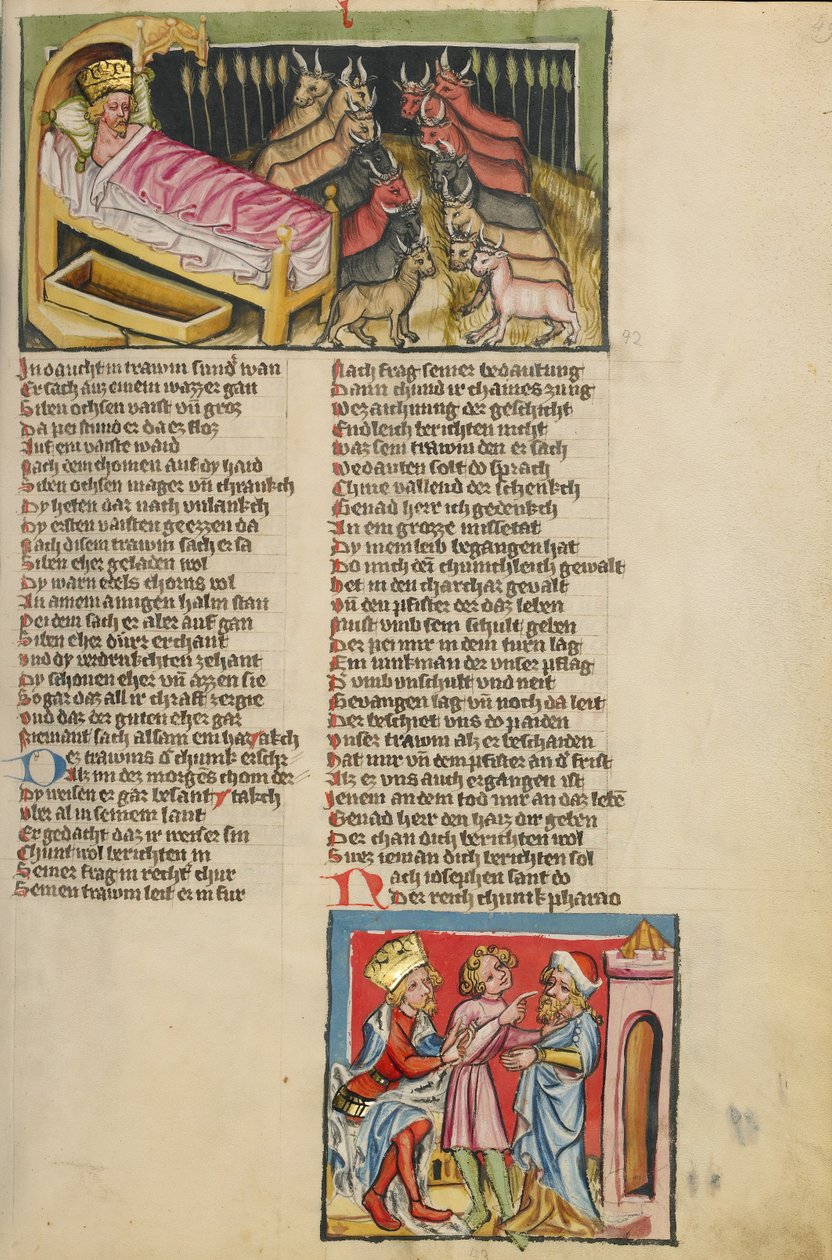 In daucht in trawm sund' wan
Er sach auz einem wazzer gan
Siben ochsen vaist vn̄ groz
Da pei stund er da ez floz
Auf ein vaiste waid
Nach dem chomen auf dy haid
Siben ochsen mager vn̄ chrankch
Dy heten dar nach vnlankch
Dy ersten vaisten geezzen da
Nach disem trawm sach er sa
Siben eher geladen wol
Dy warn edels chorns vol
An ainem ainigen halm stan
Pei dem sach er aber auf gan
Siben eher dürr erchant
vnd dy verdrukchten zehant
Dy schonen eher vn̄ azzen sie
So gar daz all ir chraft zergie
vnd daz der guten eher gar
Niemant sach alsam ein har
Dez trawms d' chunik erschr akch
Alz im dez morgēs chom der
Dy weisen er gar besant takch
vber al in seinem lant
Er gedacht daz ir weiser sin
Chunt wol berichten in
Seiner frag in recht' chur
Seinen trawm leit er in fur
Nach frag seiner bedäutung
Dann chund ir chaines zung
Bezaichnung der geschicht
Endleich berichten nicht
Waz sein trawm den er sach
Bedauten solt do sprach
Chnie vallend der schenkch
Genad herr ich gedenkch
An ein grozze missetat
Dy mein leib begangen hat
Do mich dein chunichleich gewalt
het in den charchar gevalt
vn̄ den pfister der daz leben
Must vmb sein schult geben
Der pei mir in dem turn lag
Ein iunkman der vnser pflag
D' vmb vnschult vnd neit
Gevangen lag vn̄ noch da leit
Der beschiet vns do paiden
vnser trawm alz er beschaiden
hat mir vn̄ dem pfister an d' frist
Alz er vns auch ergangen ist
Jenem an dem tod mir an daz lebē
Genad herr den haiz dir geben
Der chan dich berichten wol
Swez ieman dich berichten sol
Nach iosephen sant do
Der reich chunik pharao
92
93